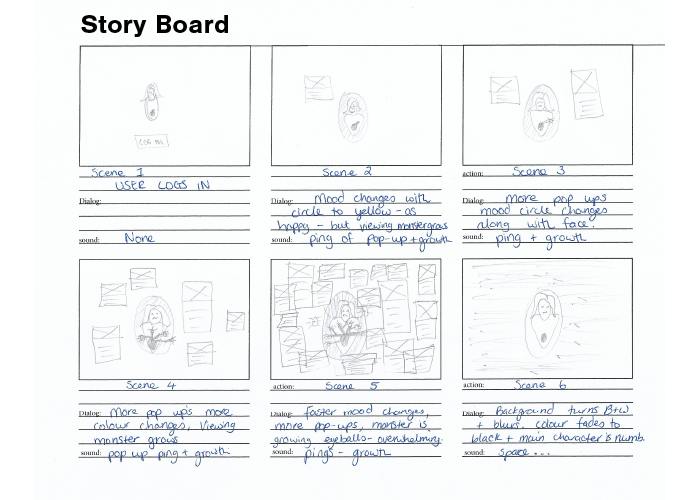 Story Board
LOG IN
Scene 1
USER LOGS IN
Dialog:
sound: None
Scene 2
Dialog: Mood changes with
circle to yellow - as
happy - but viewing monster grows
sound: ping of pop-up + growth
action: Scene 3
Dialog: More pop ups
mood circle changes
along with face.
sound: ping + growth
Scene 4
Dialog: More pop ups more
colour changes, viewing
monster grows
sound: pop up ping + growth
action: Scene 5
Dialog: faster mood changes,
more pop-ups, monster is
growing eyeballs - overwhelming.
sound: pings - growth
action: Scene 6
Dialog: Background turns B+W
+ blurs. colour fades to
black + main character is numb.
sound: space...